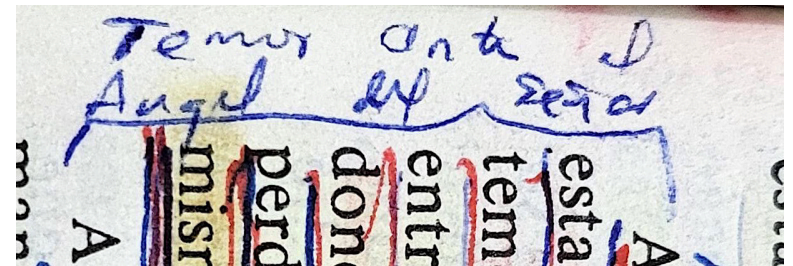 Temor ante el
Angel del Señor
esta
tem
entr
don
perd
mism
A
A